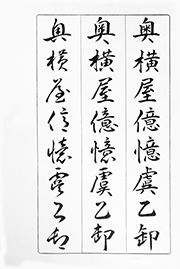 奥横屋億憶虞乙卸
奥横屋億憶虞乙卸
奥横屋億憶虞乙卸